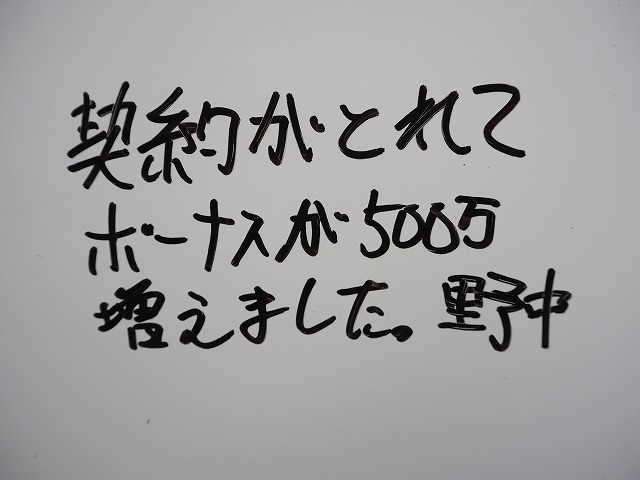 契約がとれて
ボーナスが500万
増えました。野中